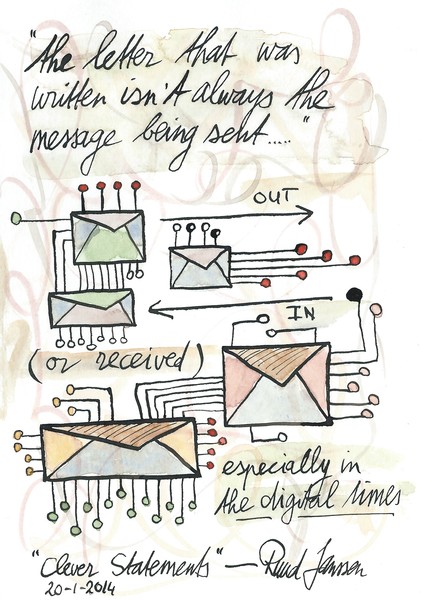 "the letter that was
written isn't always the
message being sent....."
OUT
IN
(or received)
especially in
the digital times
"Clever Statements" — Ruud Janssen
20-1-2014